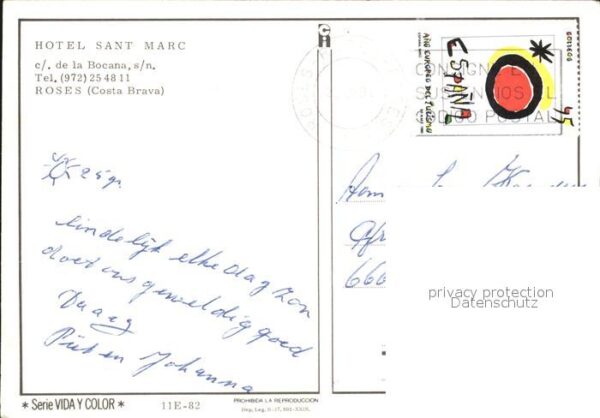 HOTEL SANT MARC
c/. de la Bocana, s/n.
Tel. (972) 25 48 11
ROSES (Costa Brava)
25 gr.
eindelijk elke dag zon
doet ons geweldig goed
Daaag
Piet en Johanna
* Serie VIDA Y COLOR *
11E-82
PROHIBIDA LA REPRODUCCION
Dep. Leg. B-17.
AÑO EUROPEO DEL TURISMO
ESPAÑA
45
CONSIGNE
CODIGO POSTAL
Fam
666
privacy protection
Datenschutz